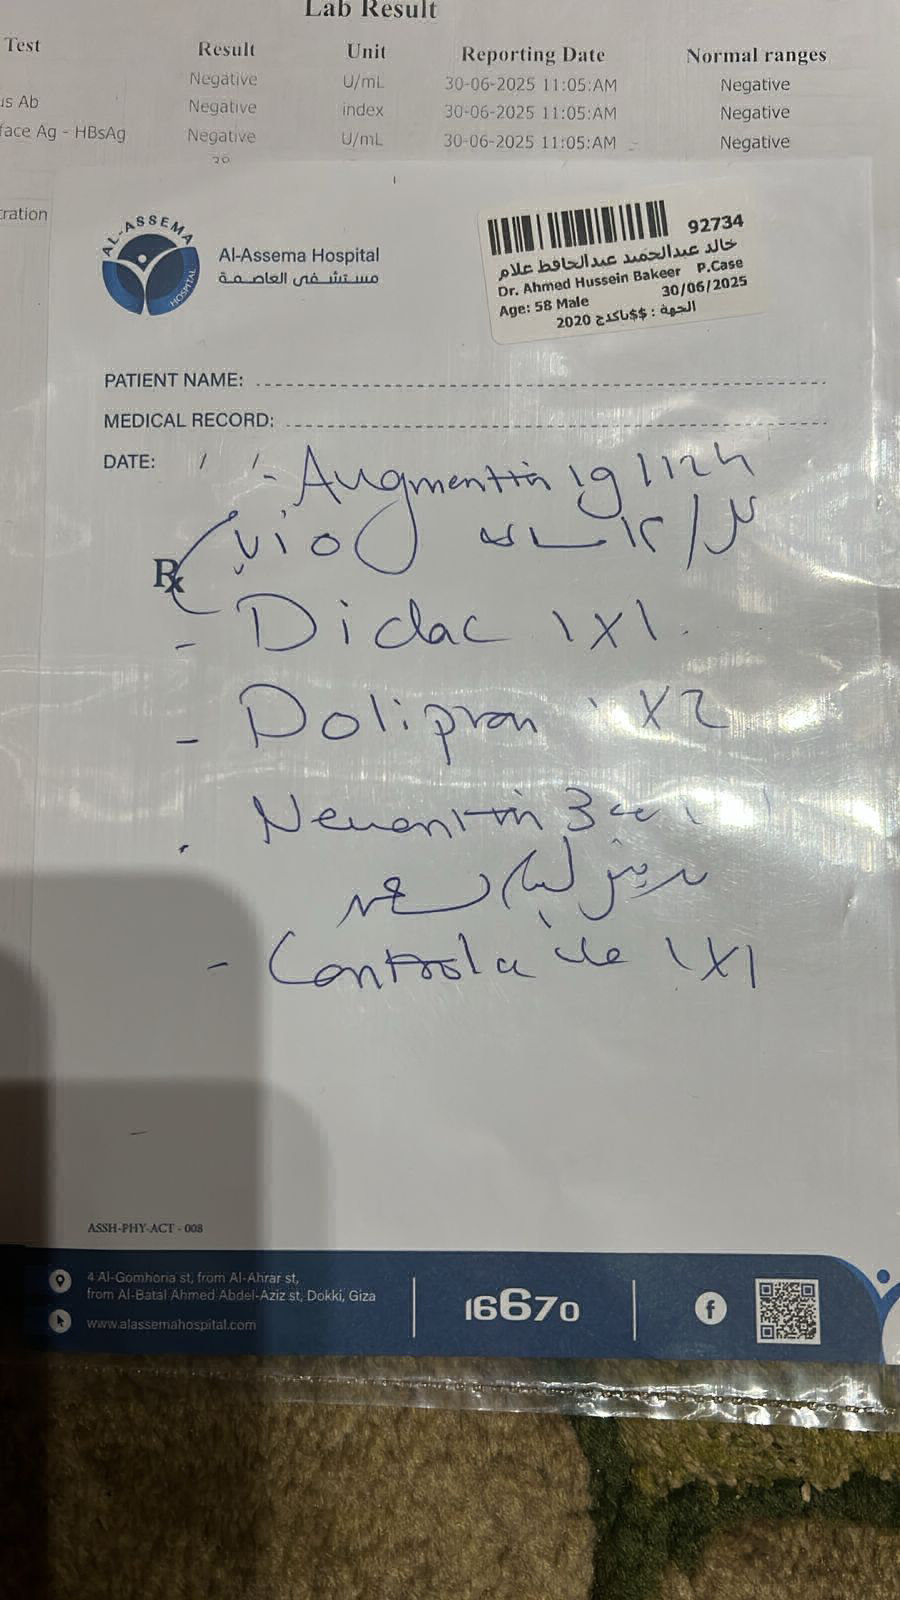 Lab Result
Test Result Unit Reporting Date Normal ranges
Negative U/mL 30-06-2025 11:05:AM Negative
us Ab Negative index 30-06-2025 11:05:AM Negative
face Ag - HBsAg Negative U/mL 30-06-2025 11:05:AM Negative
tration
AL-ASSEMA HOSPITAL
Al-Assema Hospital
مستشفى العاصمة
92734
خالد عبدالحميد عبدالحافظ علام
Dr. Ahmed Hussein Bakeer P.Case
Age: 58 Male 30/06/2025
الجهة : $$باكدج 2020
PATIENT NAME:
MEDICAL RECORD:
DATE: / /
- Augmentin 1g / 12h
كل / ١٢ ساعه ٥ أيام
Rx
- Diclac 1X1
- Dolipran 1X2
Neurontin
- Controla 1X1
ASSH-PHY-ACT - 008
4 Al-Gomhoria st, from Al-Ahrar st,
from Al-Batal Ahmed Abdel-Aziz st, Dokki, Giza
www.alassemahospital.com
16670
f